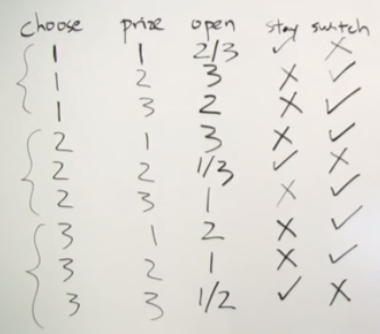 choose prize open stay switch
1 1 2/3 ✓ X
1 2 3 X ✓
1 3 2 X ✓
2 1 3 X ✓
2 2 1/3 ✓ X
2 3 1 X ✓
3 1 2 X ✓
3 2 1 X ✓
3 3 1/2 ✓ X